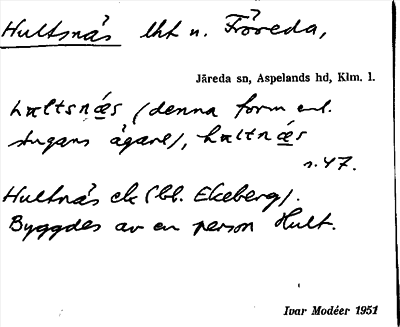 Hultsnäs lht u. Fröreda,
Järeda sn, Aspelands hd, Klm. l.
hultsnæs (denna form enl.
stugans ägare), hultnæs
s. 47.
Hultnäs ek (bl. Ekeberg).
Byggdes av en person Hult.
Ivar Modéer 1951